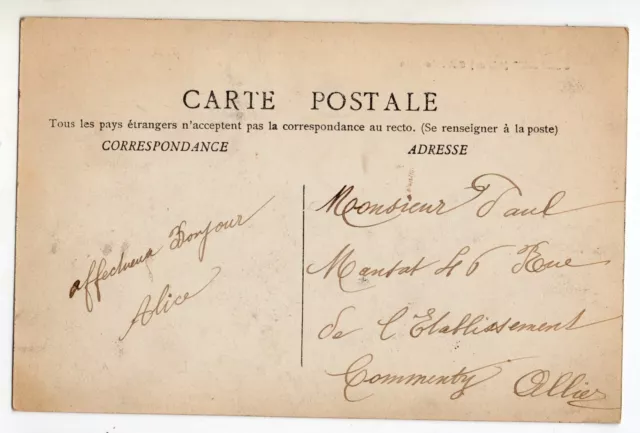 CARTE POSTALE
Tous les pays étrangers n'acceptent pas la correspondance au recto. (Se renseigner à la poste)
CORRESPONDANCE
ADRESSE
affectueux Bonjour
Alice
Monsieur Paul
Mansat 46 Rue
de l'Etablissement
Commentry Allier